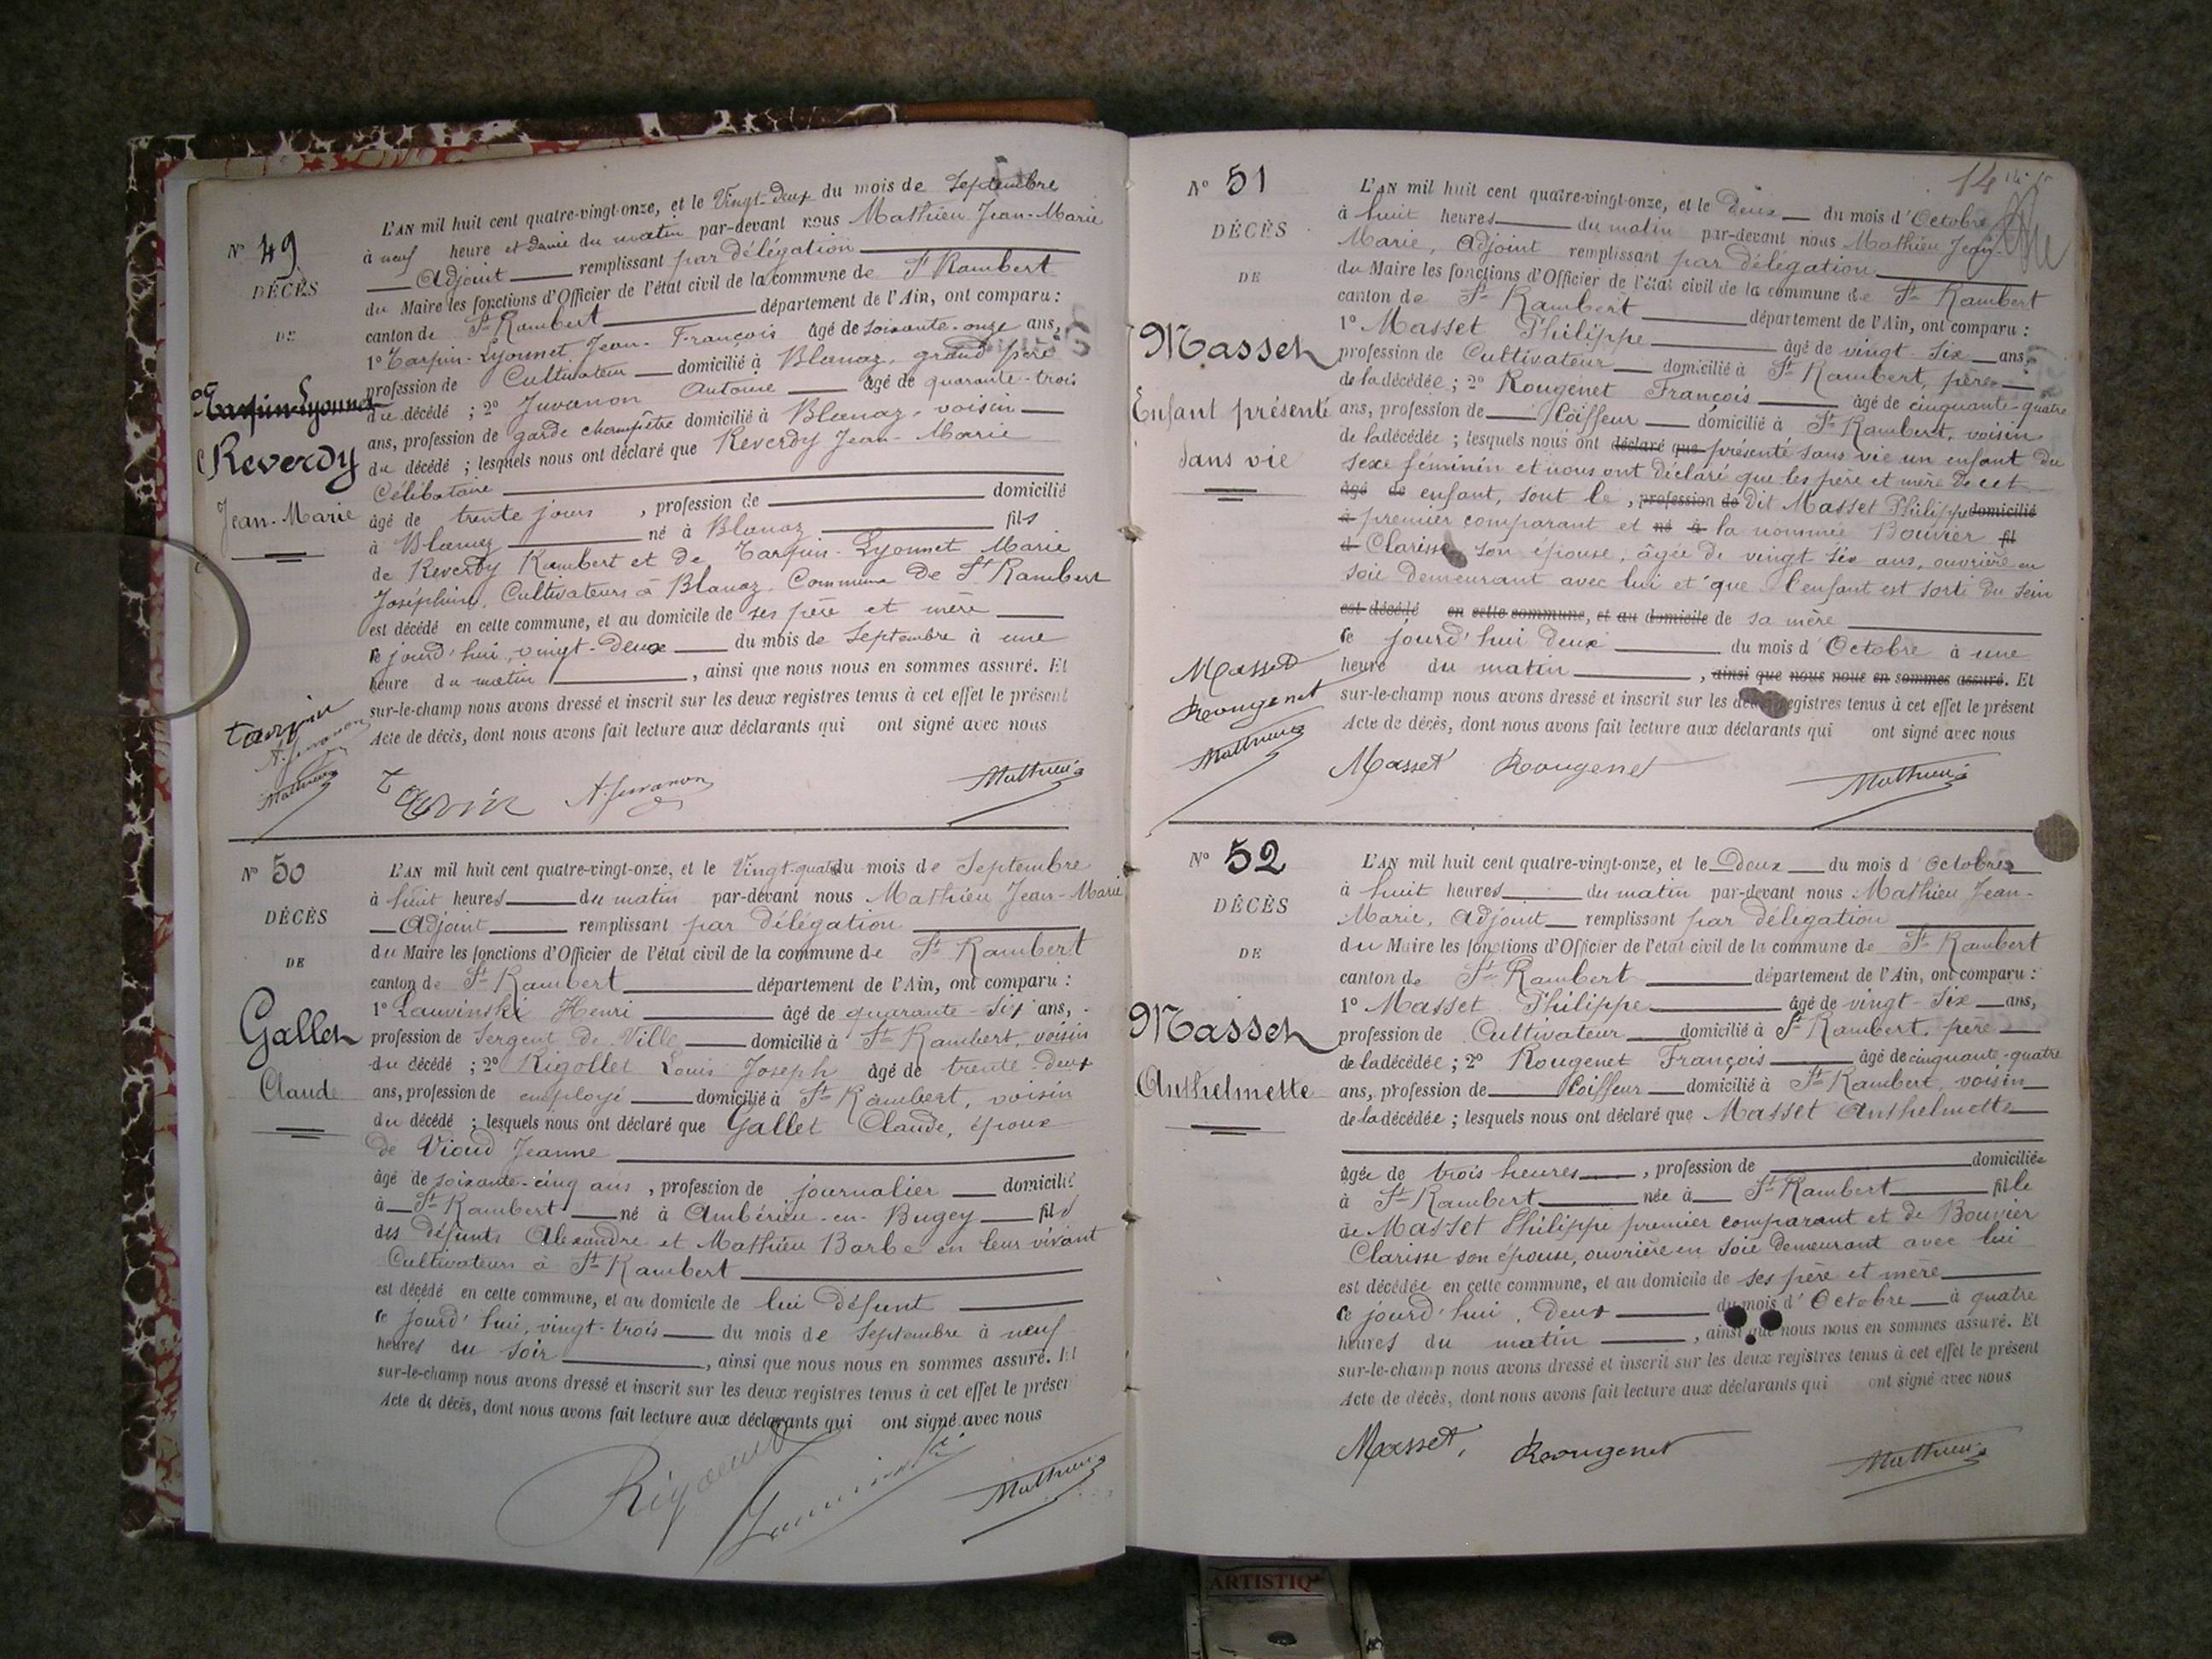 N° 49
DÉCÈS
DE
Tarpin-Lyonnet
Reverdy
Jean-Marie
L'AN mil huit cent quatre-vingt-onze, et le Vingt-deux du mois de Septembre
à neuf heure et demie du matin par-devant nous Mathieu Jean-Marie
Adjoint remplissant par délégation
du Maire les fonctions d'Officier de l'état civil de la commune de St Rambert
canton de St Rambert département de l'Ain, ont comparu :
1° Tarpin-Lyonnet, Jean-François âgé de soixante-onze ans,
profession de Cultivateur domicilié à Blanaz, grand père
du décédé ; 2° Juvanon Antoine âgé de quarante-trois
ans, profession de garde champêtre domicilié à Blanaz, voisin
du décédé ; lesquels nous ont déclaré que Reverdy Jean-Marie
Célibataire
âgé de trente jours , profession de domicilié
à Blanaz né à Blanaz fils
de Reverdy Rambert et de Tarpin-Lyonnet Marie
Joséphine, Cultivateurs à Blanaz, Commune de St Rambert
est décédé en cette commune, et au domicile de ses père et mère
ce jourd'hui, vingt-deux du mois de Septembre à une
heure du matin , ainsi que nous nous en sommes assuré. Et
sur-le-champ nous avons dressé et inscrit sur les deux registres tenus à cet effet le présent
Acte de décès, dont nous avons fait lecture aux déclarants qui ont signé avec nous
tarpin
A. Juvanon
Mathieu
Tarpin A. Juvanon Mathieu
N° 50
DÉCÈS
DE
Gallet
Claude
L'AN mil huit cent quatre-vingt-onze, et le Vingt-quatre du mois de Septembre
à huit heures du matin par-devant nous Mathieu Jean-Marie
Adjoint remplissant par délégation
du Maire les fonctions d'Officier de l'état civil de la commune de St Rambert
canton de St Rambert département de l'Ain, ont comparu :
1° Lawinski Henri âgé de quarante-six ans,
profession de Sergent de Ville domicilié à St Rambert, voisin
du décédé ; 2° Rigollet Louis Joseph âgé de trente-deux
ans, profession de employé domicilié à St Rambert, voisin
du décédé ; lesquels nous ont déclaré que Gallet Claude, époux
de Vioud Jeanne
âgé de soixante-cinq ans , profession de journalier domicilié
à St Rambert né à Ambérieu-en-Bugey fils
des défunts Alexandre et Mathieu Barbe en leur vivant
Cultivateurs à St Rambert
est décédé en cette commune, et au domicile de lui défunt
ce jourd'hui, vingt-trois du mois de Septembre à neuf
heures du soir , ainsi que nous nous en sommes assuré. Et
sur-le-champ nous avons dressé et inscrit sur les deux registres tenus à cet effet le présen
Acte de décès, dont nous avons fait lecture aux déclarants qui ont signé avec nous
Mathieu
14
N° 51
DÉCÈS
DE
Masset
Enfant présenté
sans vie
L'AN mil huit cent quatre-vingt-onze, et le Deux du mois d'Octobre
à huit heures du matin par-devant nous Mathieu Jean-
Marie, Adjoint remplissant par délégation
du Maire les fonctions d'Officier de l'état civil de la commune de St Rambert
canton de St Rambert département de l'Ain, ont comparu :
1° Masset Philippe âgé de vingt-six ans,
profession de Cultivateur domicilié à St Rambert, père
de la décédée ; 2° Rougenet François âgé de cinquante-quatre
ans, profession de Coiffeur domicilié à St Rambert, voisin
de la décédée ; lesquels nous ont déclaré que présenté sans vie un enfant du
sexe féminin et nous ont déclaré que les père et mère de cet
âgé de enfant, sont le , profession de dit Masset Philippe domicilié
à premier comparant et né à la nommée Bouvier fil
d Clarisse son épouse, âgée de vingt six ans, ouvrière en
soie demeurant avec lui et que l'enfant est sorti du sein
est décédé en cette commune, et au domicile de sa mère
ce jourd'hui deux du mois d'Octobre à une
heure du matin , ainsi que nous nous en sommes assuré. Et
sur-le-champ nous avons dressé et inscrit sur les deux registres tenus à cet effet le présent
Acte de décès, dont nous avons fait lecture aux déclarants qui ont signé avec nous
Masset
Rougenet
Mathieu
Masset Rougenet Mathieu
N° 52
DÉCÈS
DE
Masset
Anthelmette
L'AN mil huit cent quatre-vingt-onze, et le Deux du mois d'Octobre
à huit heures du matin par-devant nous Mathieu Jean-
Marie, Adjoint remplissant par délégation
du Maire les fonctions d'Officier de l'état civil de la commune de St Rambert
canton de St Rambert département de l'Ain, ont comparu :
1° Masset Philippe âgé de vingt-six ans,
profession de Cultivateur domicilié à St Rambert, père
de la décédée ; 2° Rougenet François âgé de cinquante-quatre
ans, profession de Coiffeur domicilié à St Rambert, voisin
de la décédée ; lesquels nous ont déclaré que Masset Anthelmette
âgée de trois heures , profession de domiciliée
à St Rambert née à St Rambert fille
de Masset Philippe premier comparant et de Bouvier
Clarisse son épouse, ouvrière en soie demeurant avec lui
est décédée en cette commune, et au domicile de ses père et mère
ce jourd'hui, deux du mois d'Octobre à quatre
heures du matin , ainsi que nous nous en sommes assuré. Et
sur-le-champ nous avons dressé et inscrit sur les deux registres tenus à cet effet le présent
Acte de décès, dont nous avons fait lecture aux déclarants qui ont signé avec nous
Masset, Rougenet Mathieu
ARTISTIQ